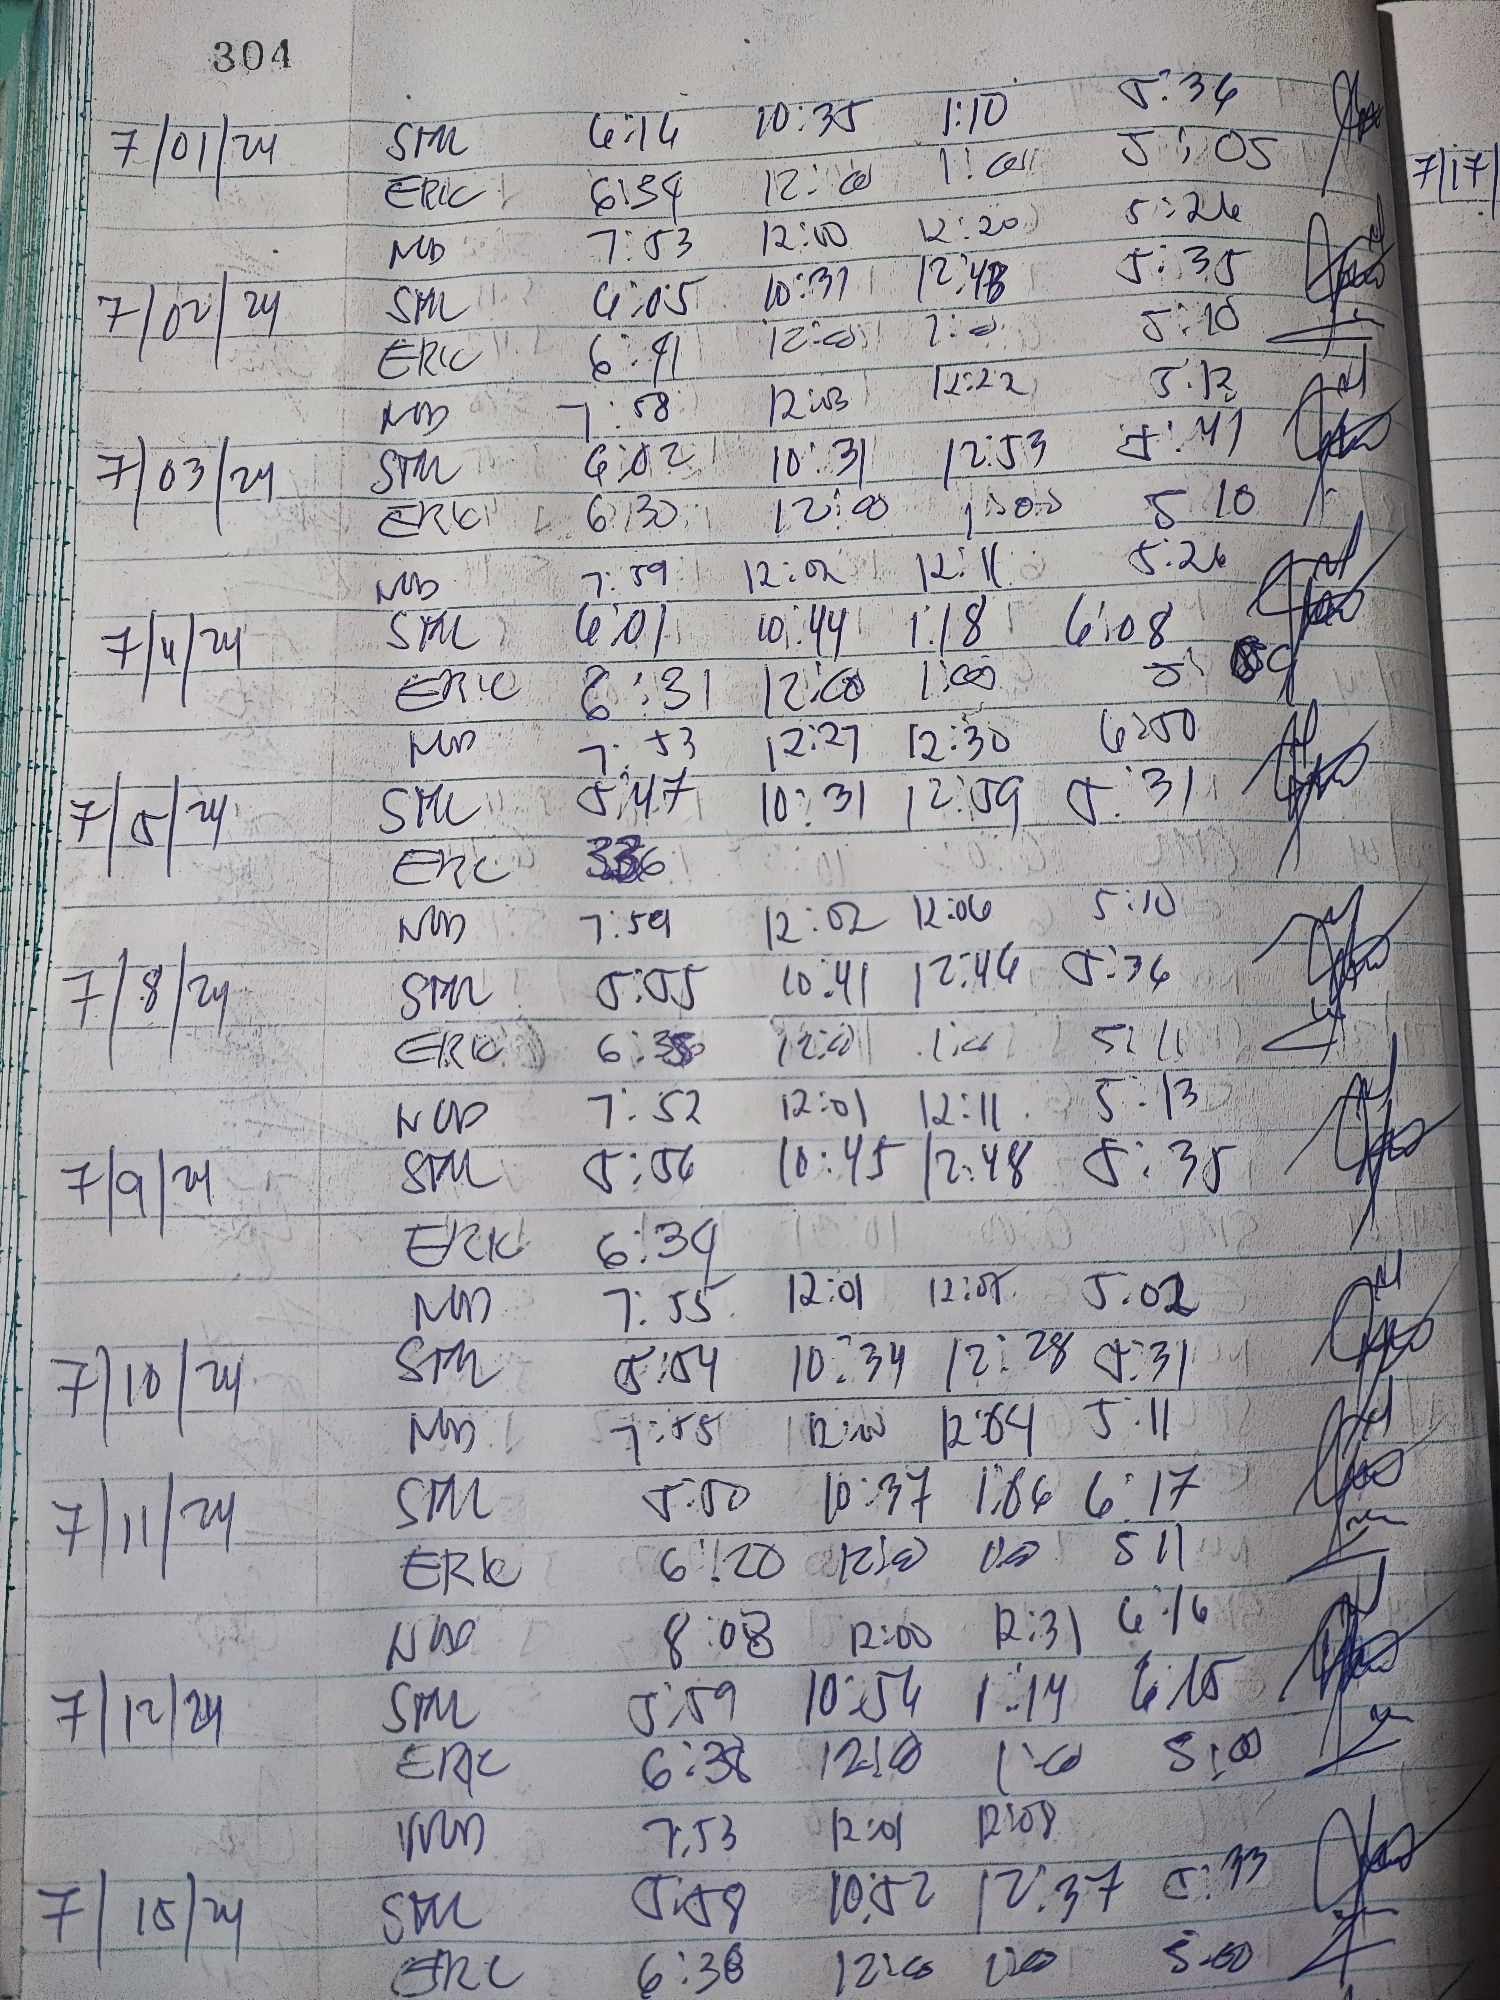 304
7/01/24 SML 6:16 10:35 1:10 5:36
ERIC 6:34 12:00 1:00 5:05
NOD 7:53 12:00 12:20 5:26
7/02/24 SML 6:05 10:31 12:48 5:35
ERIC 6:41 12:00 1:00 5:10
NOD 7:58 12:03 12:22 5:12
7/03/24 SML 6:02 10:31 12:53 5:41
ERIC 6:30 12:00 1:00 5:10
NOD 7:59 12:02 12:11 5:26
7/4/24 SML 6:01 10:44 1:18 6:08
ERIC 6:31 12:00 1:00
NOD 7:53 12:27 12:30 6:50
7/5/24 SML 5:47 10:31 12:59 5:31
ERIC
NOD 7:59 12:02 12:06 5:10
7/8/24 SML 5:55 10:41 12:46 5:36
ERIC 12:00 1:00 5:11
NOD 7:52 12:01 12:11 5:13
7/9/24 SML 5:56 10:45 12:48 5:35
ERIC 6:34
NOD 7:55 12:01 12:05 5:02
7/10/24 SML 5:54 10:34 12:28 5:31
NOD 7:55 12:00 12:04 5:11
7/11/24 SML 5:50 10:37 1:06 6:17
ERIC 6:20 12:00 1:00 5 11
NOD 8:08 12:00 12:31 6:16
7/12/24 SML 5:59 10:54 1:14 6:15
ERIC 6:38 12:00 1:00 5:00
NOD 7:53 12:01 12:08
7/15/24 SML 5:58 10:52 12:37 5:33
ERIC 6:38 12:00 1:00 5:00
7/17/